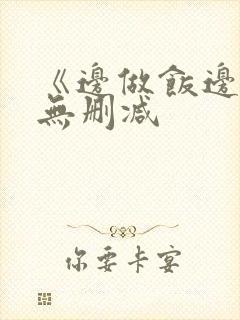 《邊做飯邊
無删減
你要卡宴